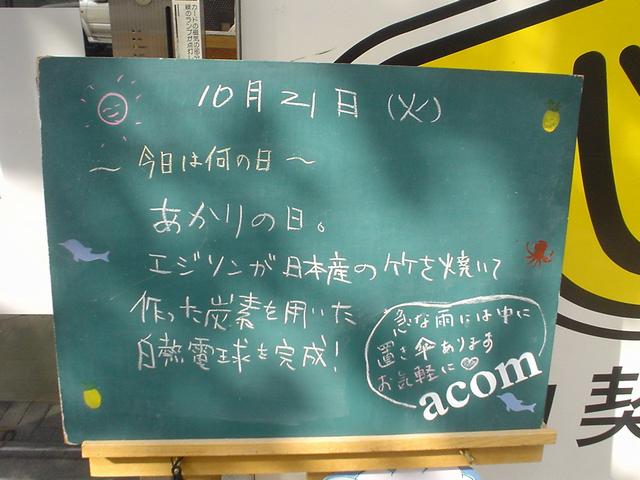 カードの磁気の部分
緑のランプが点灯
10月21日（火）
～今日は何の日～
あかりの日。
エジソンが日本産の竹を焼いて
作った炭素を用いた
白熱電球を完成!
急な雨には中に
置き傘あります
お気軽に♡
acom
契